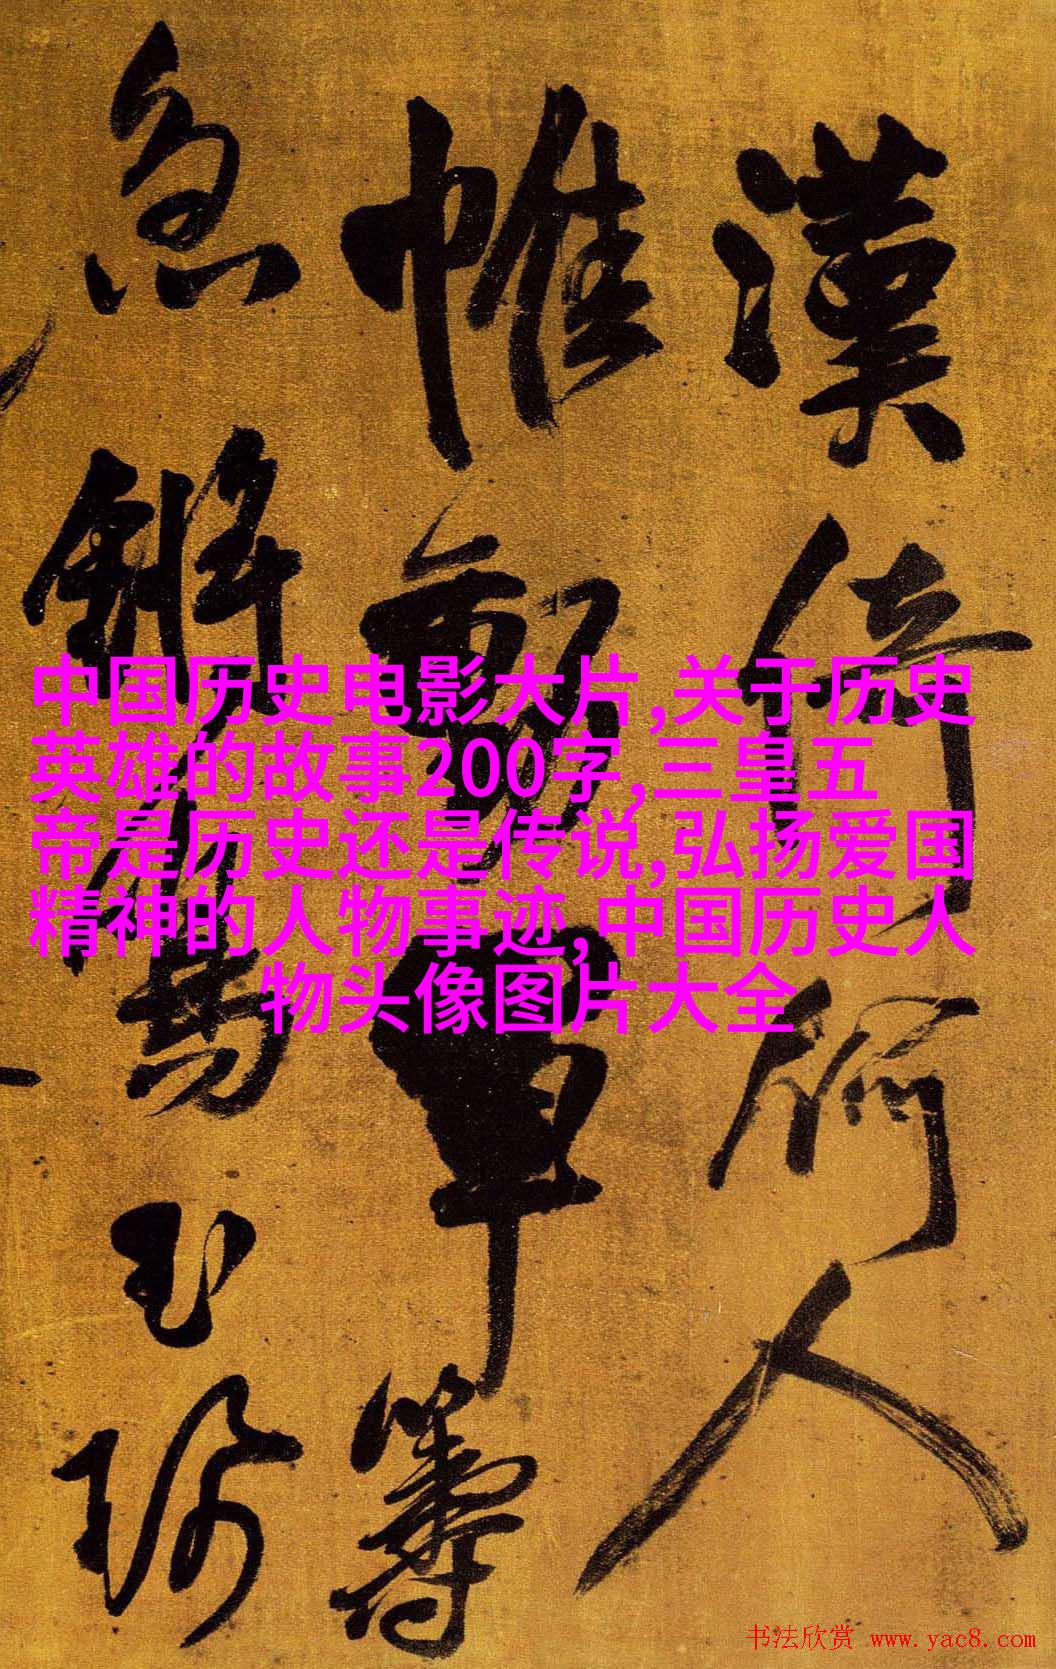 漢倚何人
帷早籌
急玉
中国历史电影大片,关于历史
英雄的故事200字,三皇五
帝是历史还是传说,弘扬爱国
精神的人物事迹,中国历史人
物头像图片大全
书法欣赏 www.yac8.com